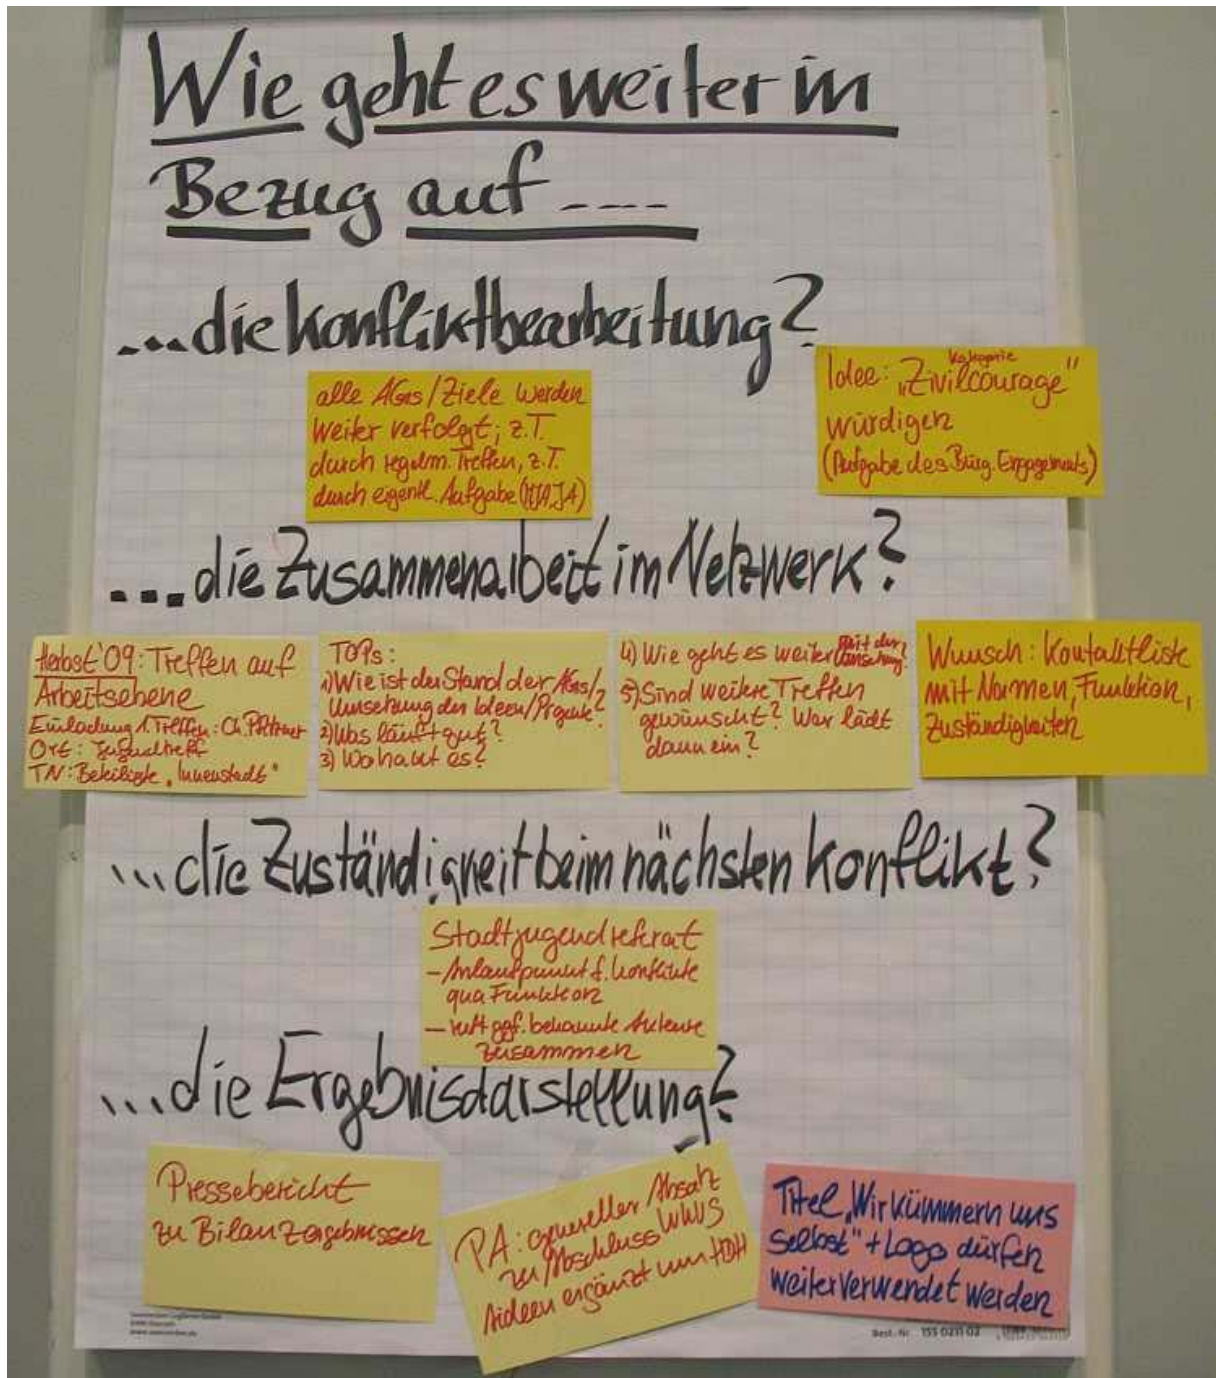 Wie geht es weiter in
Bezug auf ----
...die Konfliktbearbeitung?
alle AGs/Ziele werden
weiter verfolgt; z.T.
durch regelm. Treffen, z.T.
durch eigentl. Aufgabe
Kategorie
Idee: "Zivilcourage"
würdigen
(Aufgabe des Bürg. Engagements)
...die Zusammenarbeit im Netzwerk?
Herbst '09: Treffen auf
Arbeitsebene
Einladung 1. Treffen: Ch.
Ort: Jugendtreff
TN: Beteiligte "Innenstadt"
TOPs:
1) Wie ist der Stand der AGs/
Umsetzung der Ideen/Projekte?
2) Was läuft gut?
3) Wo hakt es?
4) Wie geht es weiter mit der
Umsetzung?
5) Sind weitere Treffen
gewünscht? Wer lädt
dann ein?
Wunsch: Kontaktliste
mit Namen, Funktion,
Zuständigkeiten
...die Zuständigkeit beim nächsten Konflikt?
Stadtjugendreferat
- Anlaufpunkt f. Konflikte
qua Funktion
- ruft ggf. bekannte Akteure
zusammen
...die Ergebnisdarstellung?
Pressebericht
zu Bilanzergebnissen
PA: genereller Absatz
zu Abschluss WKUS
ergänzt um HDH
Titel "Wir kümmern uns
selbst" + Logo dürfen
weiterverwendet werden
Best.-Nr. 155 0211 02